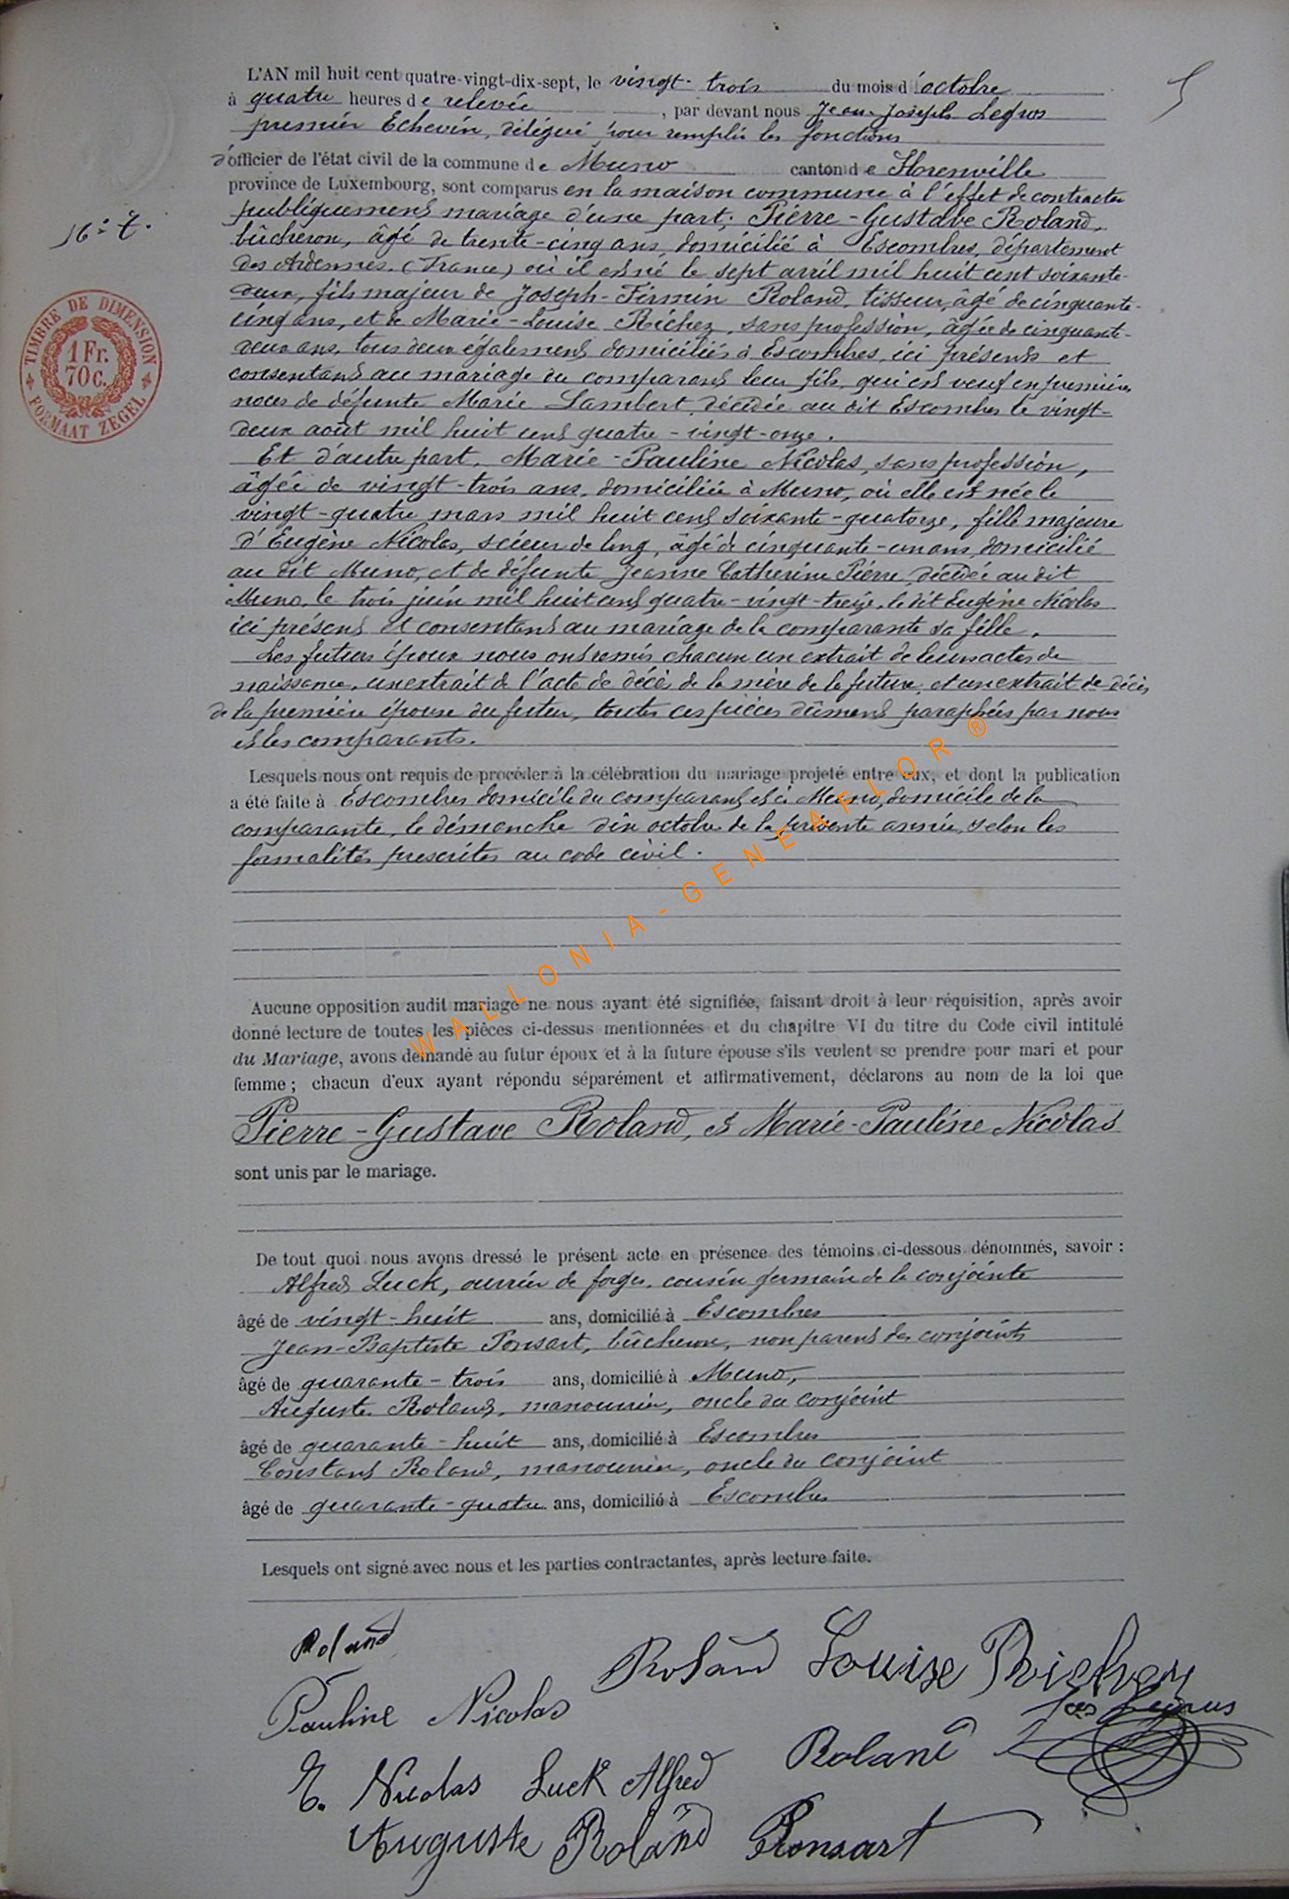 L'AN mil huit cent quatre-vingt-dix-sept, le vingt-trois du mois d'octobre
à quatre heures de relevée, par devant nous Jean-Joseph Legros
premier Echevin, délégué pour remplir les fonctions
d'officier de l'état civil de la commune de Muno canton de Florenville
province de Luxembourg, sont comparus en la maison commune à l'effet de contracter
publiquement mariage d'une part; Pierre-Gustave Roland,
bûcheron, âgé de trente-cinq ans, domicilié à Escombres, département
des Ardennes (France) où il est né le sept avril mil huit cent soixante-
deux, fils majeur de Joseph-Firmin Roland, tisseur, âgé de cinquante-
cinq ans, et de Marie-Louise Richez, sans profession, âgée de cinquante-
deux ans, tous deux également domiciliés à Escombres, ici présents et
consentans au mariage du comparant leur fils, qui est veuf en premières
noces de défunte Marie Lambert, décédée au dit Escombres le vingt-
deux août mil huit cent quatre-vingt-onze.
Et d'autre part, Marie-Pauline Nicolas, sans profession,
âgée de vingt-trois ans, domiciliée à Muno, où elle est née le
vingt-quatre mars mil huit cent soixante-quatorze, fille majeure
d'Eugène Nicolas, scieur de long, âgé de cinquante-un ans, domicilié
au dit Muno, et de défunte Jeanne Catherine Pierre, décédée au dit
Muno, le trois juin mil huit cent quatre-vingt-treize, le dit Eugène Nicolas
ici présent et consentant au mariage de la comparante sa fille.
Les futurs époux nous ont remis chacun un extrait de leurs actes de
naissance, un extrait de l'acte de décès de la mère de la future, et un extrait de décès
de la première épouse du futur, toutes ces pièces dûment paraphées par nous
et les comparants.
Lesquels nous ont requis de procéder à la célébration du mariage projeté entre eux, et dont la publication
a été faite à Escombres domicile du comparant et à Muno, domicile de la
comparante, le dimanche dix octobre de la présente année, selon les
formalités prescrites au code civil.
Aucune opposition audit mariage ne nous ayant été signifiée, faisant droit à leur réquisition, après avoir
donné lecture de toutes les pièces ci-dessus mentionnées et du chapitre VI du titre du Code civil intitulé
du Mariage, avons demandé au futur époux et à la future épouse s'ils veulent se prendre pour mari et pour
femme; chacun d'eux ayant répondu séparément et affirmativement, déclarons au nom de la loi que
Pierre-Gustave Roland, et Marie-Pauline Nicolas
sont unis par le mariage.
De tout quoi nous avons dressé le présent acte en présence des témoins ci-dessous dénommés, savoir :
Alfred Luck, ouvrier de forges, cousin germain de la conjointe
âgé de vingt-huit ans, domicilié à Escombres
Jean-Baptiste Ponsart, bûcheron, non parent des conjoints
âgé de quarante-trois ans, domicilié à Muno,
Auguste Roland, manouvrier, oncle du conjoint
âgé de quarante-huit ans, domicilié à Escombres
Constant Roland, manouvrier, oncle du conjoint
âgé de quarante-quatre ans, domicilié à Escombres
Lesquels ont signé avec nous et les parties contractantes, après lecture faite.
Roland
Roland Louise Richez
Pauline Nicolas
Jos Legros
Roland
E. Nicolas Luck Alfred
Auguste Roland Ponsart
TIMBRE DE DIMENSION
1 Fr.
70 C.
FORMAAT ZEGEL
WALLONIA-GENEAFLOR®